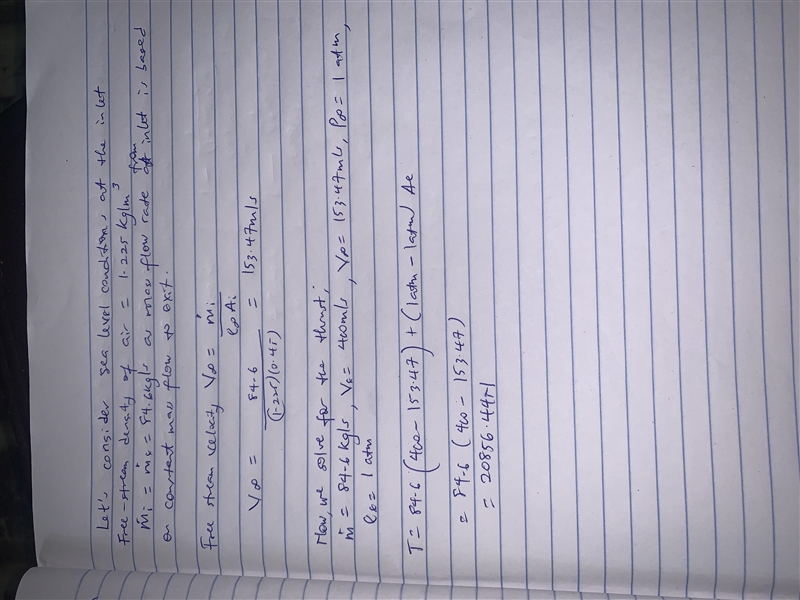 Let's consider sea level conditions at the inlet
Free-stream density of air = 1.225 kg/m³
ṁi = ṁe = 84.6kg/s as mass flow rate from inlet is based
on constant mass flow to exit.
Free stream velocity V∞ = ṁi / ρ∞ Ai
V∞ = 84.6 / (1.225)(0.45) = 153.47m/s
Now, we solve for the thrust;
ṁ = 84.6 kg/s, Ve = 400m/s, V∞ = 153.47m/s, P∞ = 1 atm,
Pe = 1 atm
T = 84.6 (400 - 153.47) + (1atm - 1atm) Ae
= 84.6 (400 - 153.47)
= 20856.44N